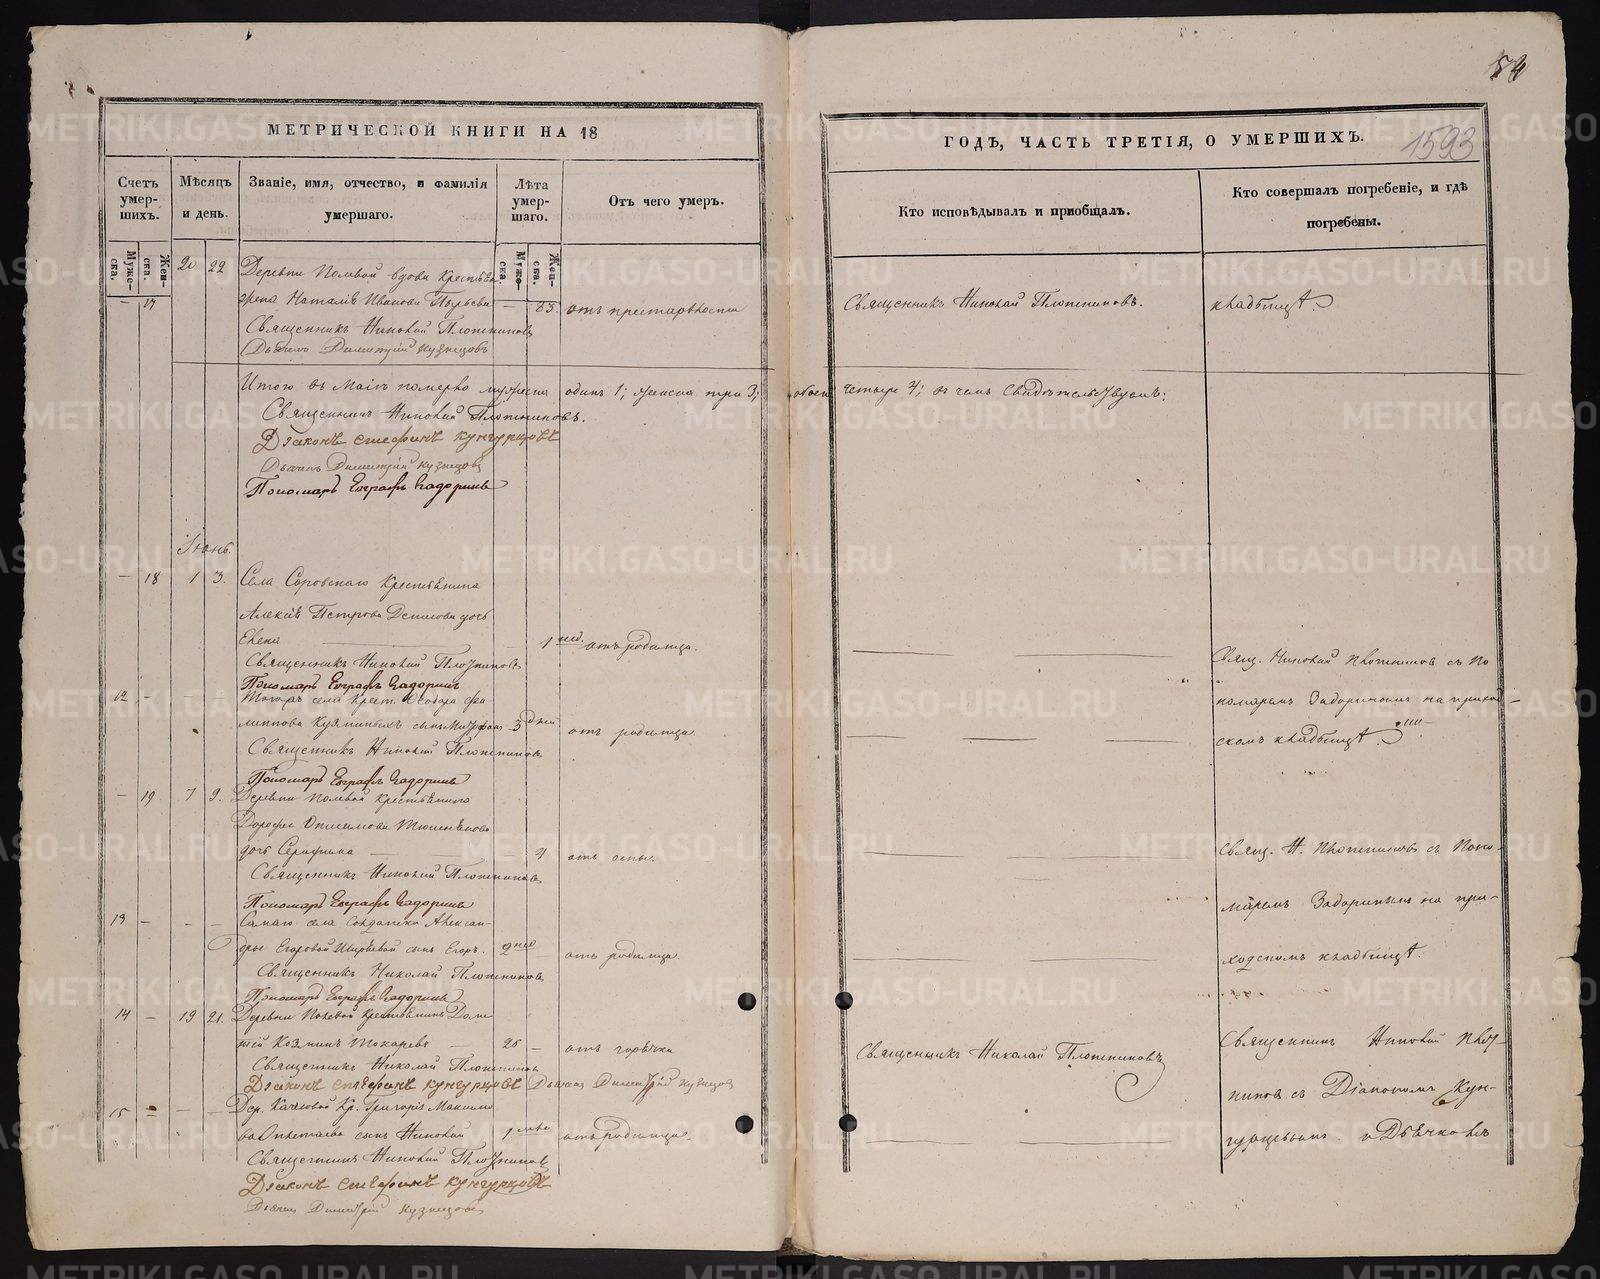 54
МЕТРИЧЕСКОЙ КНИГИ НА 18
ГОДЪ, ЧАСТЬ ТРЕТІЯ, О УМЕРШИХЪ.
1593
Счетъ умер-шихъ.
Муже-ска.
Жен-ска.
Мѣсяцъ и день.
Званіе, имя, отчество, и фамилія умершаго.
Лѣта умер-шаго.
Муже-ска.
Жен-ска.
Отъ чего умеръ.
Кто исповѣдывалъ и приобщалъ.
Кто совершалъ погребеніе, и гдѣ погребены.
20 22 Деревни Полевой вдова Крестьян
— 17 Наталія Иванова — 83. отъ престарѣлости
Священникъ Николай Плотниковъ.
кладбищѣ.
Священникъ Николай Плотниковъ
Дьячекъ Димитрій Кузнецовъ
Итого въ Маіѣ померло мужеска одинъ 1; женска три 3; обоего четыре 4; въ чемъ свидѣтельствуемъ:
Священникъ Николай Плотниковъ.
Діаконъ Стефанъ Кунгурцовъ
Дьячекъ Димитрій Кузнецовъ
Пономарь Евграфъ Задоринъ
Іюнь.
— 18 1 3. Села Соровскаго Крестьянина
Алексѣя Петрова Денисова дочь
Елена — 1 нед. отъ родимца.
Священникъ Николай Плотниковъ
Пономарь Евграфъ Задоринъ
Свящ. Николай Плотников съ по
номаремъ Задоринымъ на приход
скомъ кладбищѣ.
12 — — Тогожъ села Крест. Ѳедора Фи
липпова сынъ 3 дней отъ родимца.
Священникъ Николай Плотниковъ
Пономарь Евграфъ Задоринъ
— 19 7 9. Деревни Полевой Крестьянина
Дорофея Онисимова
дочь Серафима — 4 отъ оспы.
Священникъ Николай Плотниковъ
Пономарь Евграфъ Задоринъ
Свящ. Н. Плотников съ Поно-
маремъ Задоринымъ на при-
ходскомъ кладбищѣ.
13 — — — села солдатки Алексан-
дры Егоровой сынъ Егоръ. 2 нед отъ родимца.
Священникъ Николай Плотниковъ
Пономарь Евграфъ Задоринъ
14 — 19 21. Деревни Полевой Крестьянинъ
Козминъ Токаревъ — 25 — отъ горячки
Священникъ Николай Плотниковъ
Священникъ Николай Плотниковъ
Діаконъ Стефанъ Кунгурцовъ Дьячекъ Димитрій Кузнецов
Священникъ Николай Плот-
ников съ Діакономъ Кун-
гурцевымъ и Дьячковъ
15 — — — Дер. Качаловой Кр. Григорія Максимо
ва сынъ Николай 1 отъ родимца.
Священникъ Николай Плотников
Діаконъ Стефанъ Кунгурцовъ
Дьячекъ Димитрій Кузнецовъ
METRIKI.GASO-URAL.RU